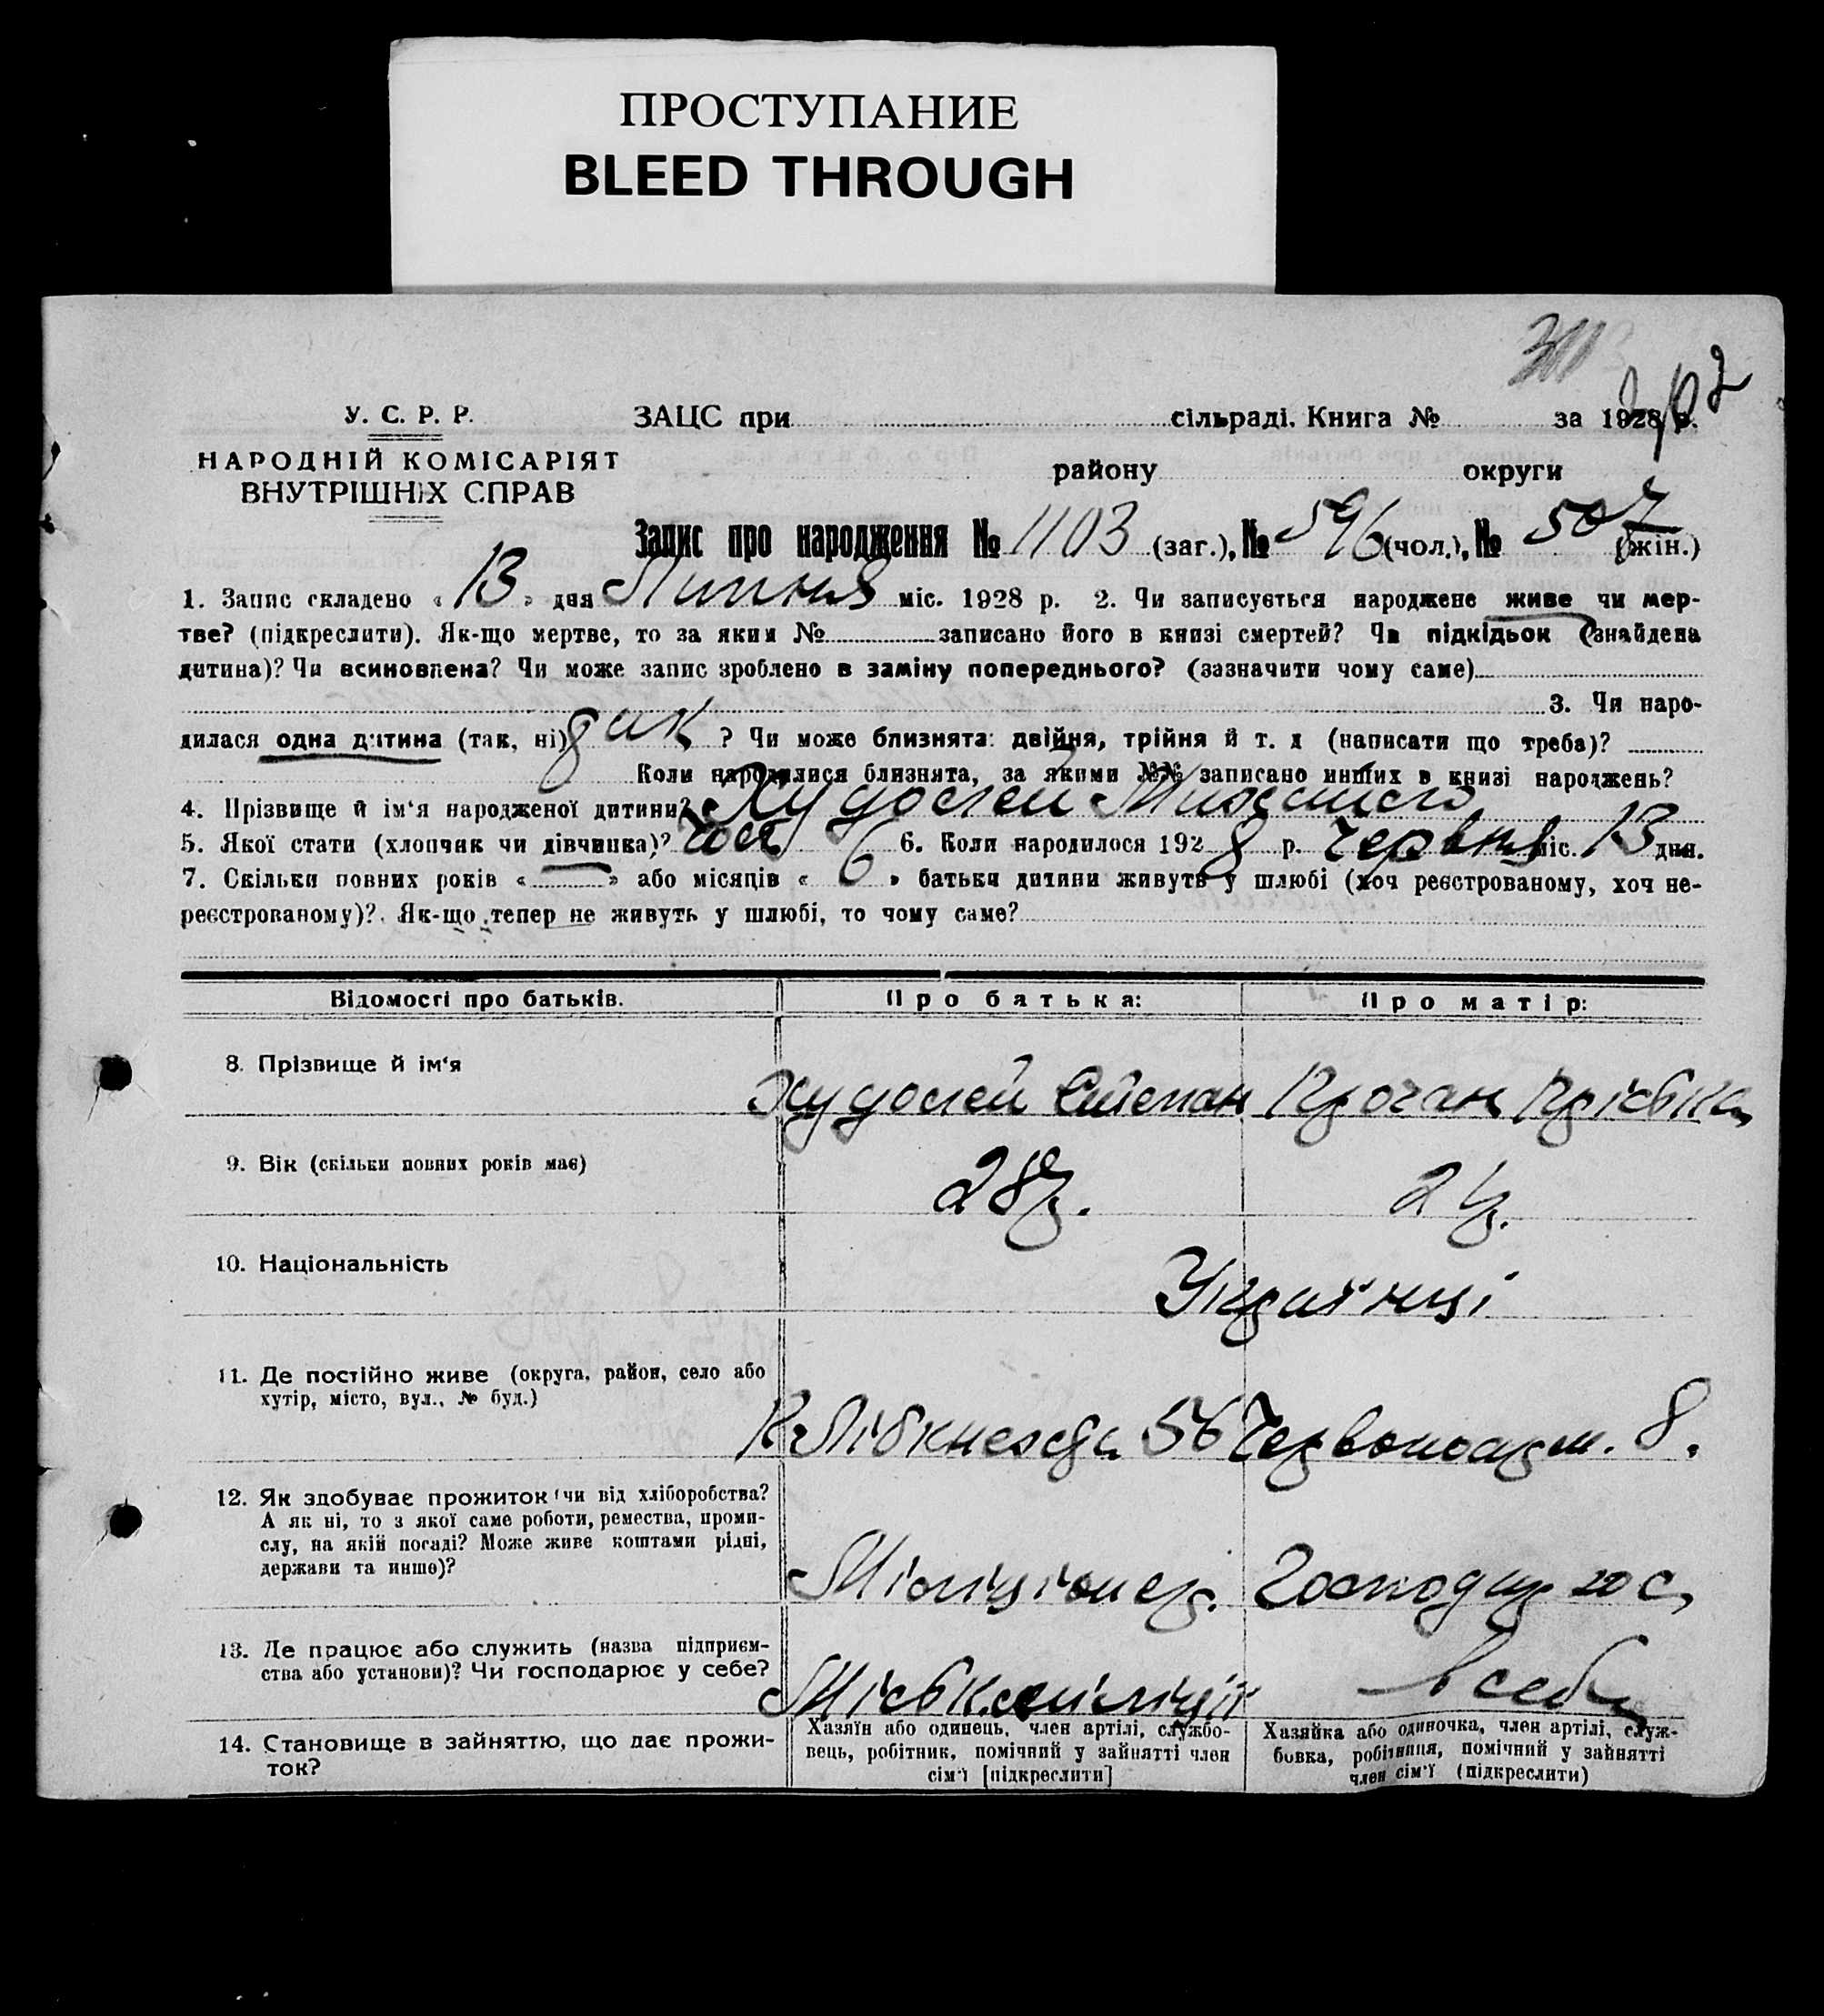 ПРОСТУПАНИЕ
BLEED THROUGH
У. С. Р. Р.
НАРОДНІЙ КОМІСАРІЯТ
ВНУТРІШНІХ СПРАВ
ЗАЦС при сільраді. Книга № за 1928 р.
району округи
Запис про народження № 1103 (заг.), № 596 (чол.), № 507 (жін.)
1. Запис складено « 13 » дня Липня міс. 1928 р. 2. Чи записується народжене живе чи мер-
тве? (підкреслити). Як-що мертве, то за яким № записано його в книзі смертей? Чи підкідьок (знайдена
дитина)? Чи всиновлена? Чи може запис зроблено в заміну попереднього? (зазначити чому саме)
3. Чи наро-
дилася одна дитина (так, ні) так ? Чи може близнята: двійня, трійня й т. д (написати що треба)?
Коли народилися близнята, за якими №№ записано инших в книзі народжень?
4. Прізвище й ім'я народженої дитини? Худолей
5. Якої стати (хлопчик чи дівчинка)? чол 6. Коли народилося 1928 р. Червня міс. 13 дня.
7. Скільки повних років « » або місяців « 6 » батьки дитини живуть у шлюбі (хоч реєстрованому, хоч не-
реєстрованому)? Як-що тепер не живуть у шлюбі, то чому саме?
Відомості про батьків. Про батька: Про матір:
8. Прізвище й ім'я Худолей Степан
9. Вік (скільки повних років має) 28р.
10. Національність Українці
11. Де постійно живе (округа, район, село або
хутір, місто, вул., № буд.)
К Лібкнехта 56 Червоноарм. 8.
12. Як здобуває прожиток (чи від хліборобства?
А як ні, то з якої саме роботи, ремества, проми-
слу, на якій посаді? Може живе коштами рідні,
держави та инше)?
Міліціонер.
13. Де працює або служить (назва підприєм-
ства або установи)? Чи господарює у себе?
Міськ.міліція в себе
14. Становище в зайняттю, що дає прожи-
ток?
Хазяїн або одинець, член артілі, службо-
вець, робітник, помічний у зайнятті член
сім'ї [підкреслити]
Хазяйка або одиночка, член артілі, служ-
бовка, робітниця, помічний у зайнятті
член сім'ї (підкреслити)